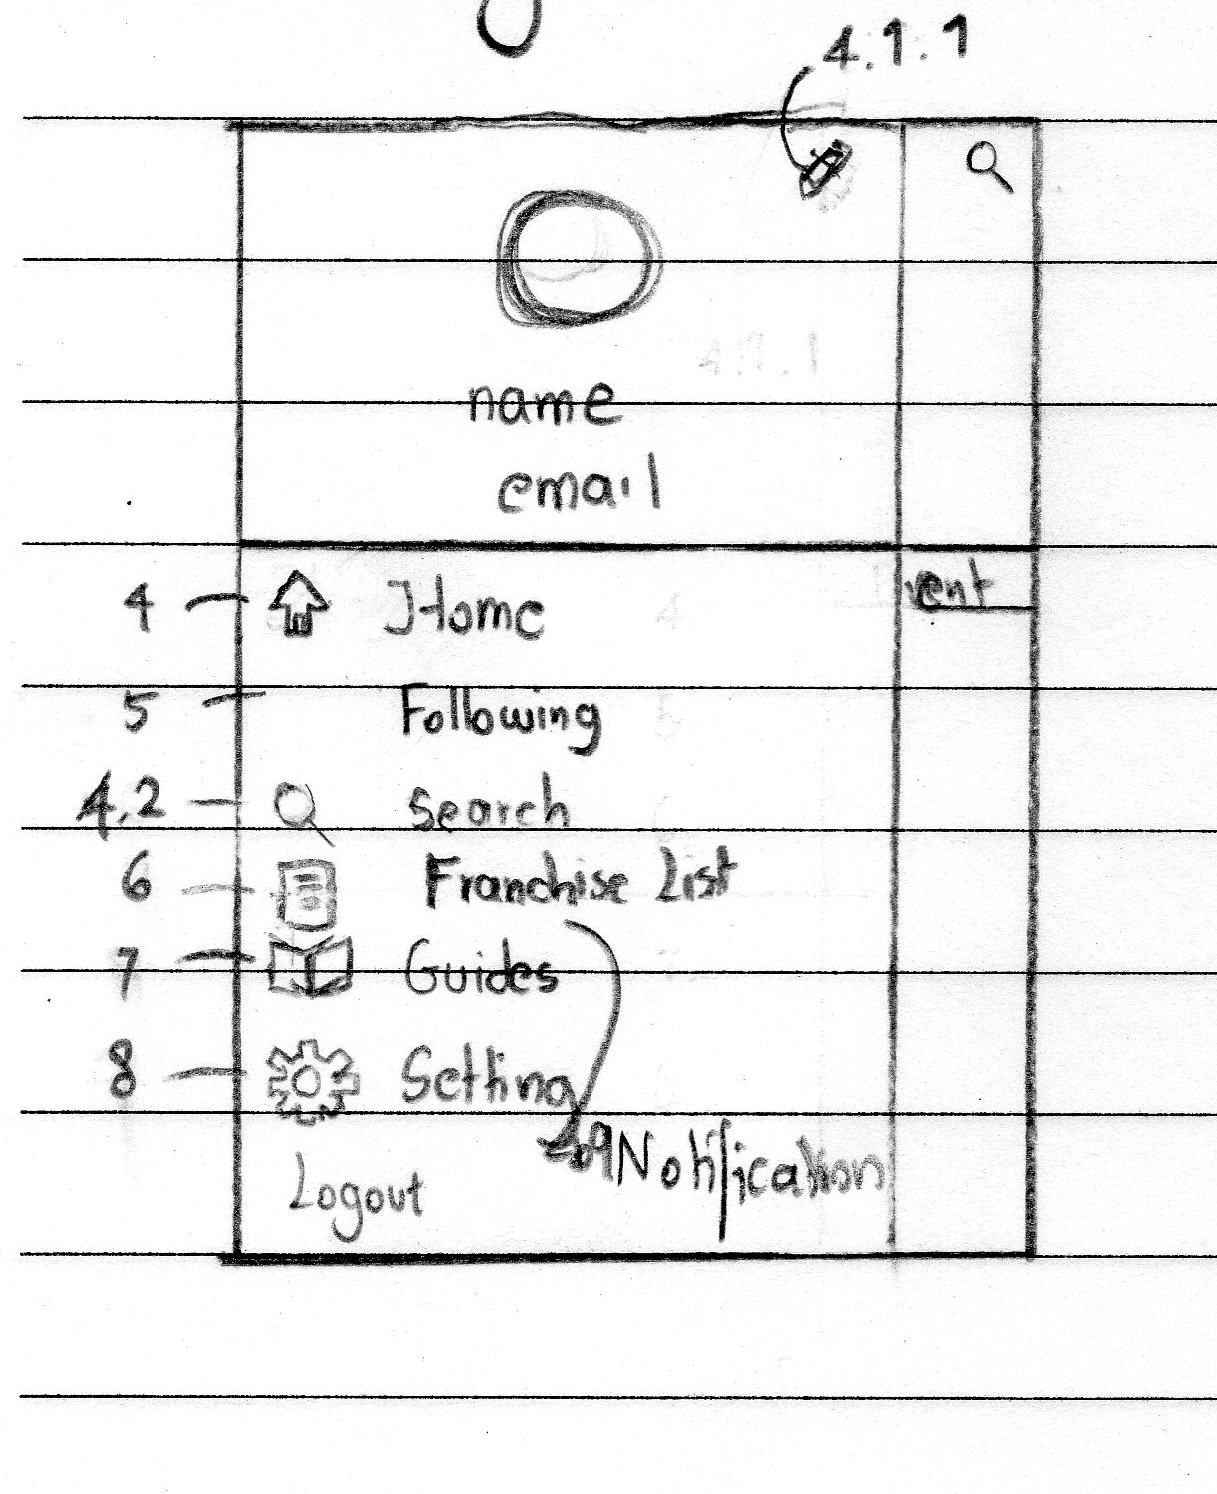 4.1.1
name
email
4 Home vent
5 Following
4.2 Search
6 Franchise List
7 Guides
8 Setting
Notification
Logout